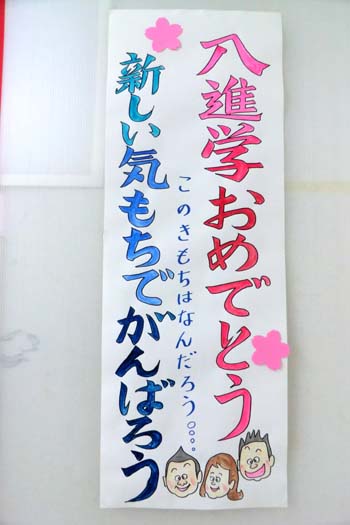 八進学おめでとう
このきもちはなんだろう。。。。
新しい気もちでがんばろう